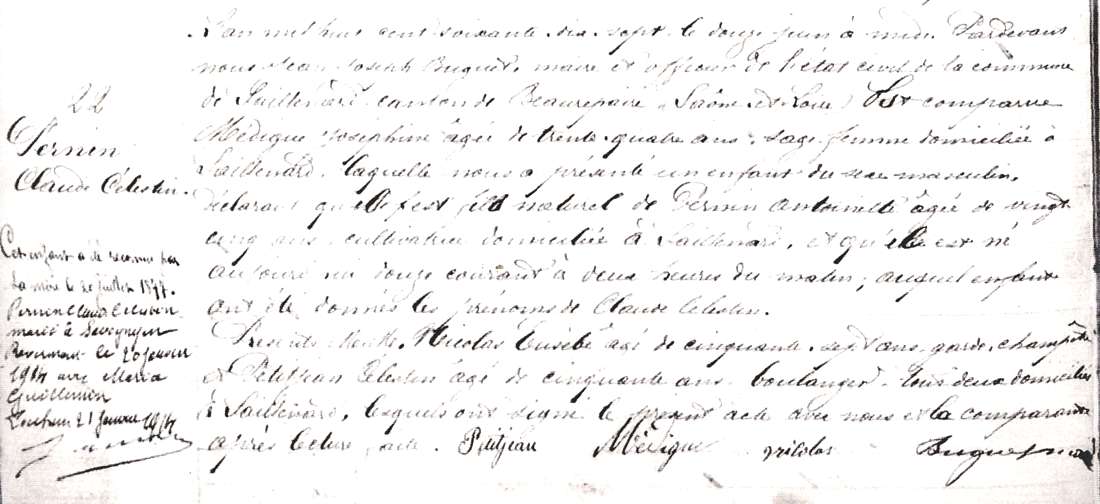 22
Pernin
Claude Célestin.
Cet enfant a été reconnu par
la mère le 20 juillet 1877.
Pernin Claude Célestin
marié à Savigny en
Revermont le 20 janvier
1914 avec Maria
Guillemin
Louhans 21 Janvier 1914
L'an mil huit cent soixante dix sept le douze juin à midi. Pardevant
nous Jean Joseph Buguet, maire et officier de l'état civil de la commune
de Saillenard canton de Beaurepaire (Saône et Loire) Est comparue
Médigue Joséphine âgée de trente quatre ans, sage femme domiciliée à
Saillenard, laquelle nous a présenté un enfant du sexe masculin,
déclarant qu'elle est fils naturel de Pernin Antoinette âgée de vingt
cinq ans, cultivatrice domiciliée à Saillenard, et qu'elle est né
aujourd'hui douze courant à deux heures du matin; auquel enfant
ont été donnés les prénoms de Claude Célestin.
Présents Nicolas Eusèbe âgé de cinquante sept ans, garde champêtre
& Petitjean Célestin âgé de cinquante ans boulanger. tous deux domiciliés
à Saillenard, lesquels ont signé le présent acte avec nous et la comparante
après lecture faite. Petitjean Médigue Nicolas Buguet